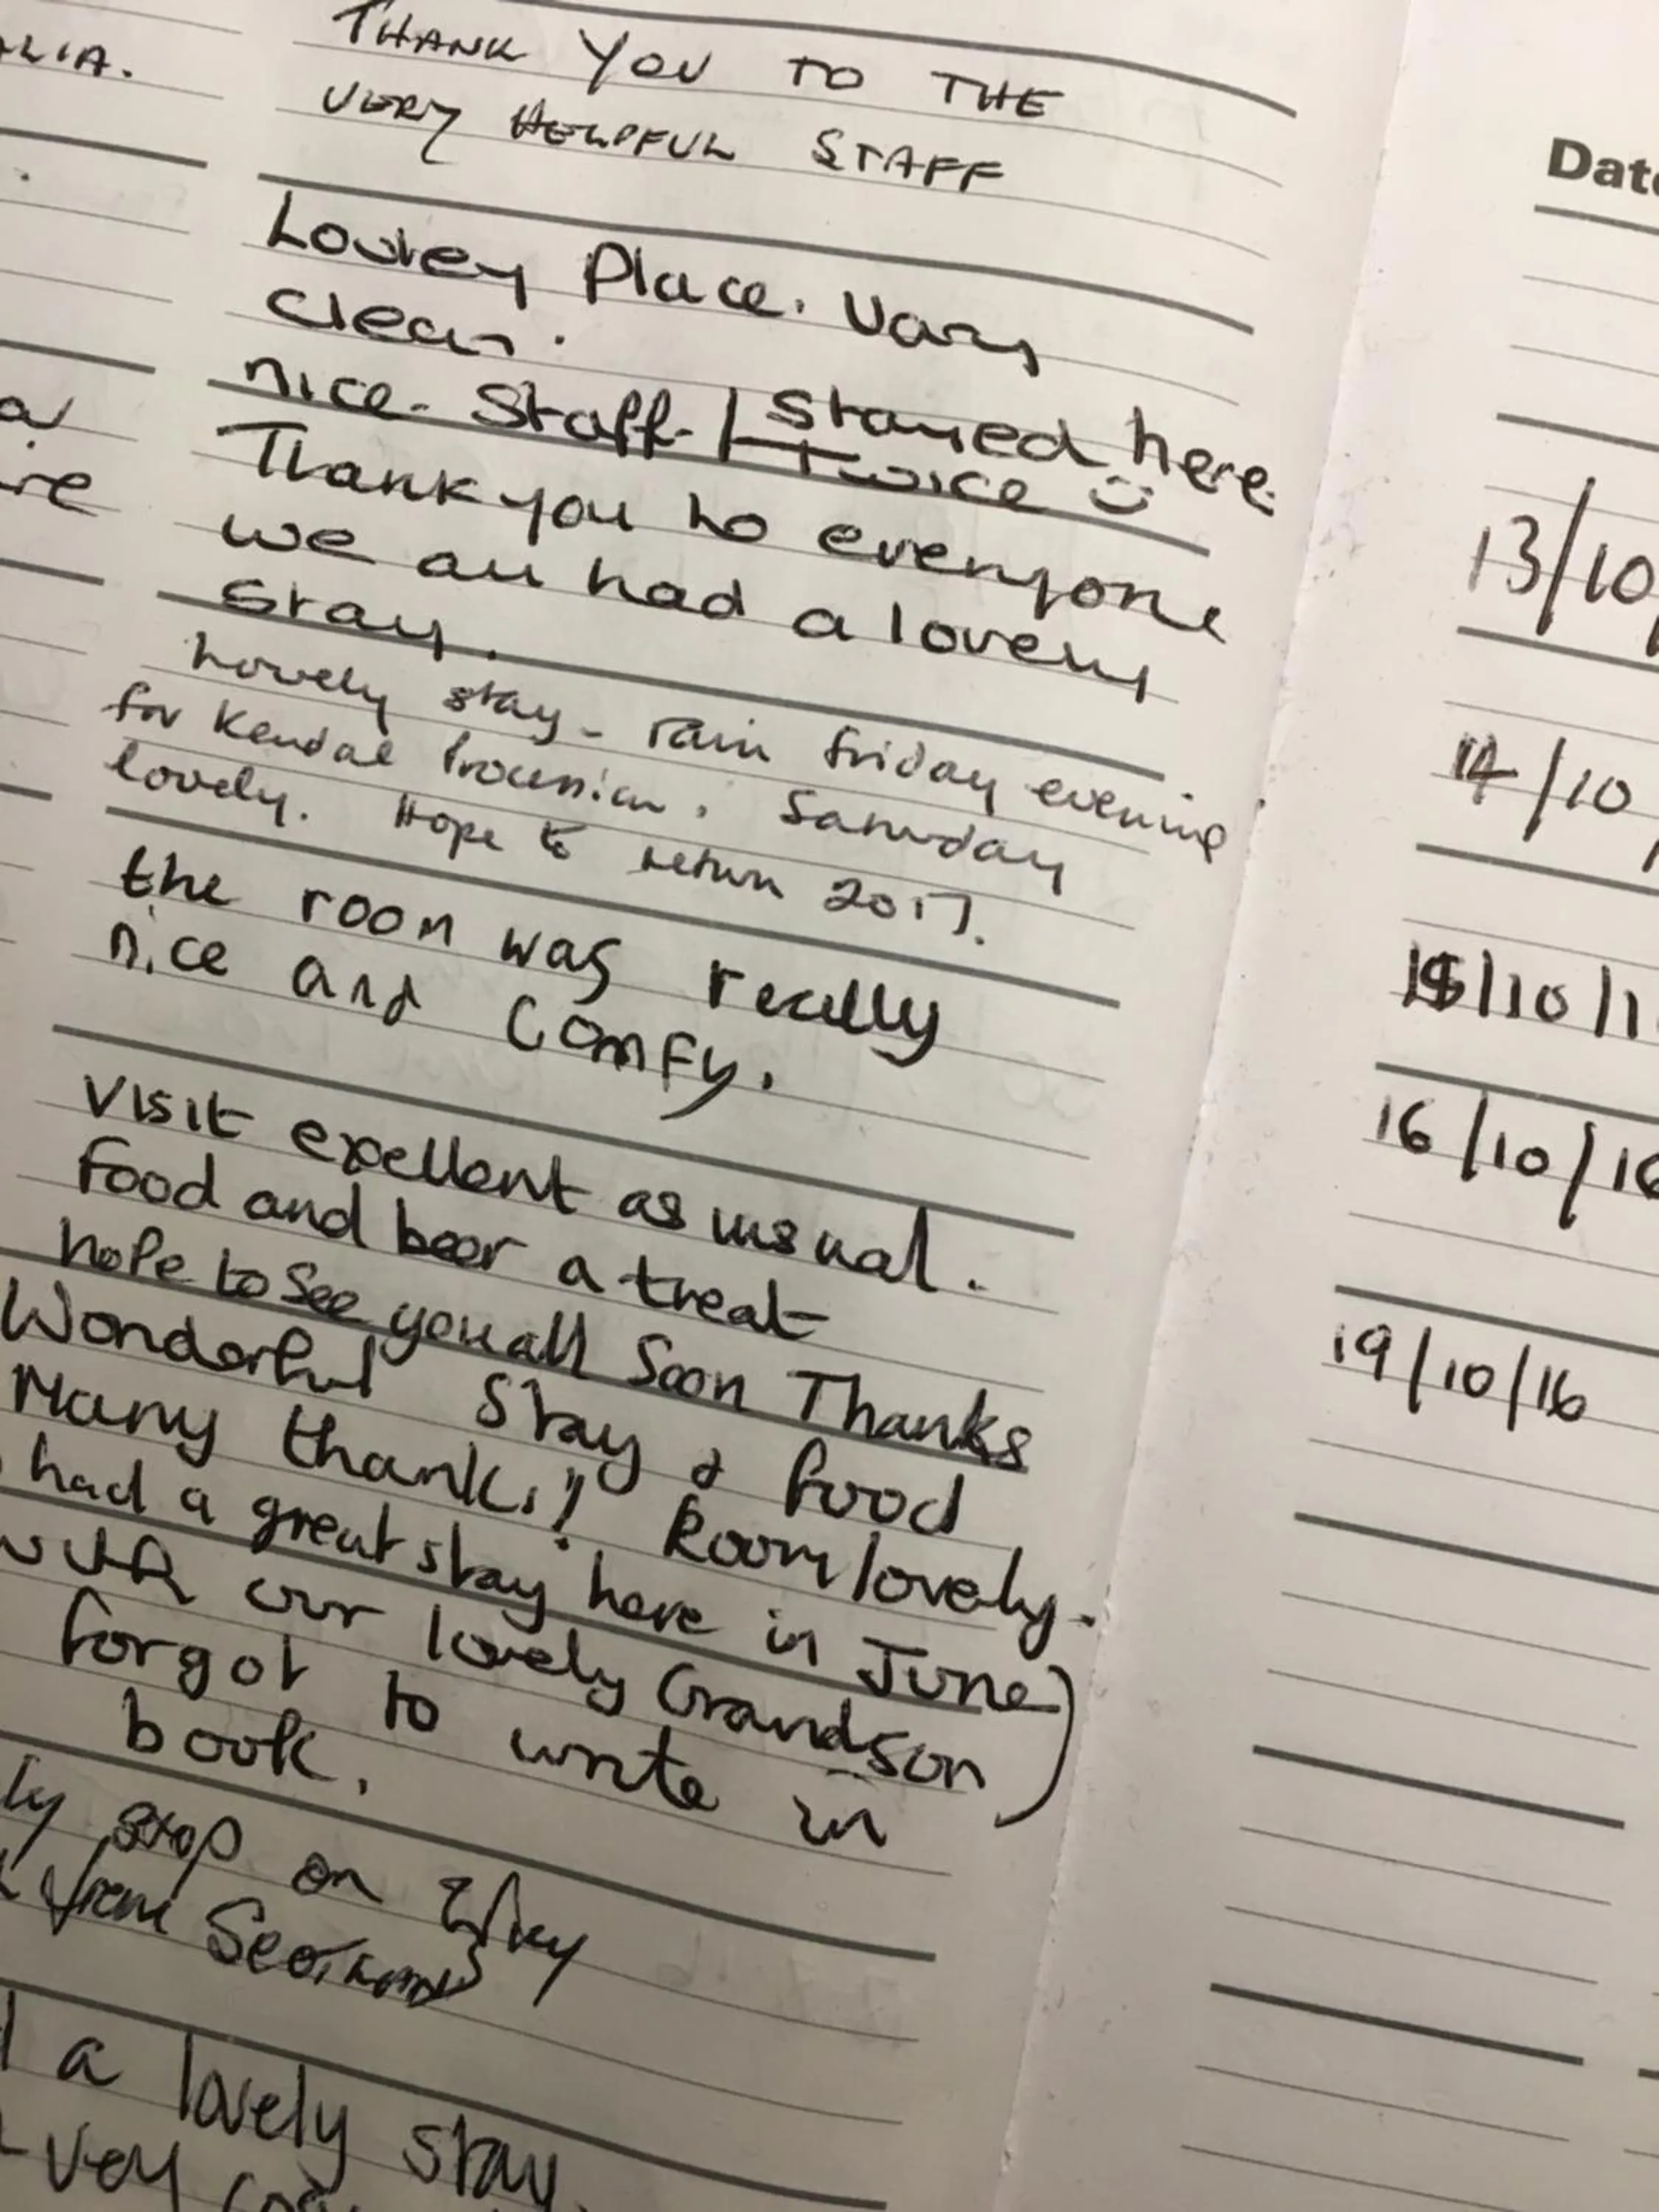 THANK YOU TO THE
VERY HELPFUL STAFF
Lovley Place. Vary
clean.
nice. Staff. / Stayed here.
Twice
Thank you to everyone
we all had a lovely
stay.
Lovely stay - rain friday evening
for Kendal Procession. Saturday
lovely. Hope to return 2017.
the room was really
nice and comfy.
Visit expellent as usual.
Food and beer a treat
hope to see you all Soon Thanks
Wonderful Stay & food
Many thanks! Room lovely.
had a great stay here in June)
with our lovely Grandson
forgot to write in
book.
stop on
from
a lovely stay.
very
Date
13/10/
14/10/
15/10/1
16/10/16
19/10/16